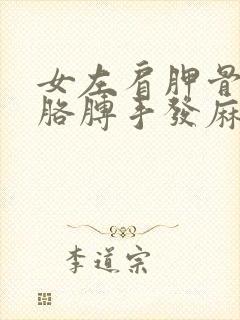 女左肩胛骨
胳膊手發麻
李道宗